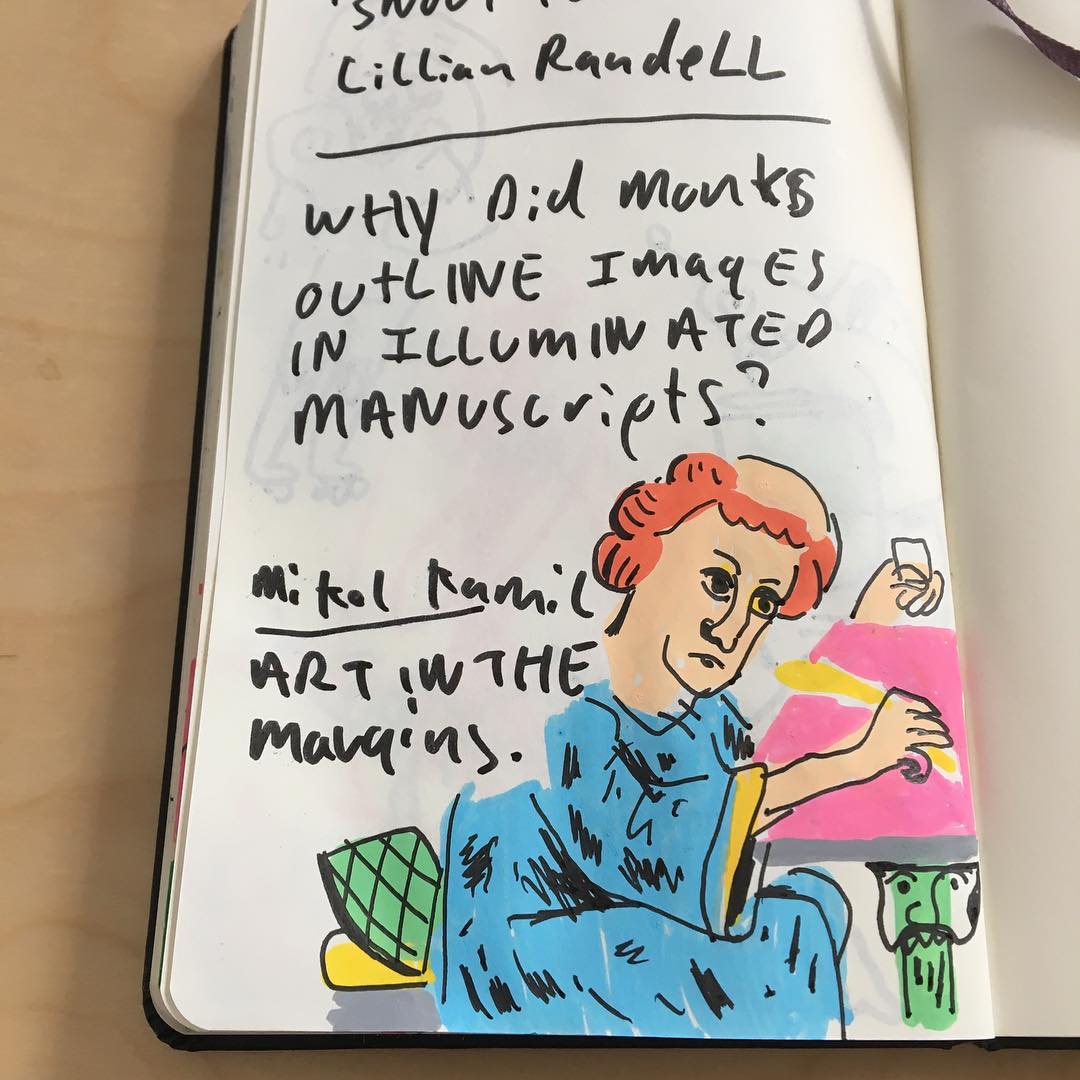 Lillian Randell
Why Did Monks
OUtLINE Images
IN ILLUMINATED
MANUscripts?
Mikol Kamil
ART IN THE
Margins.